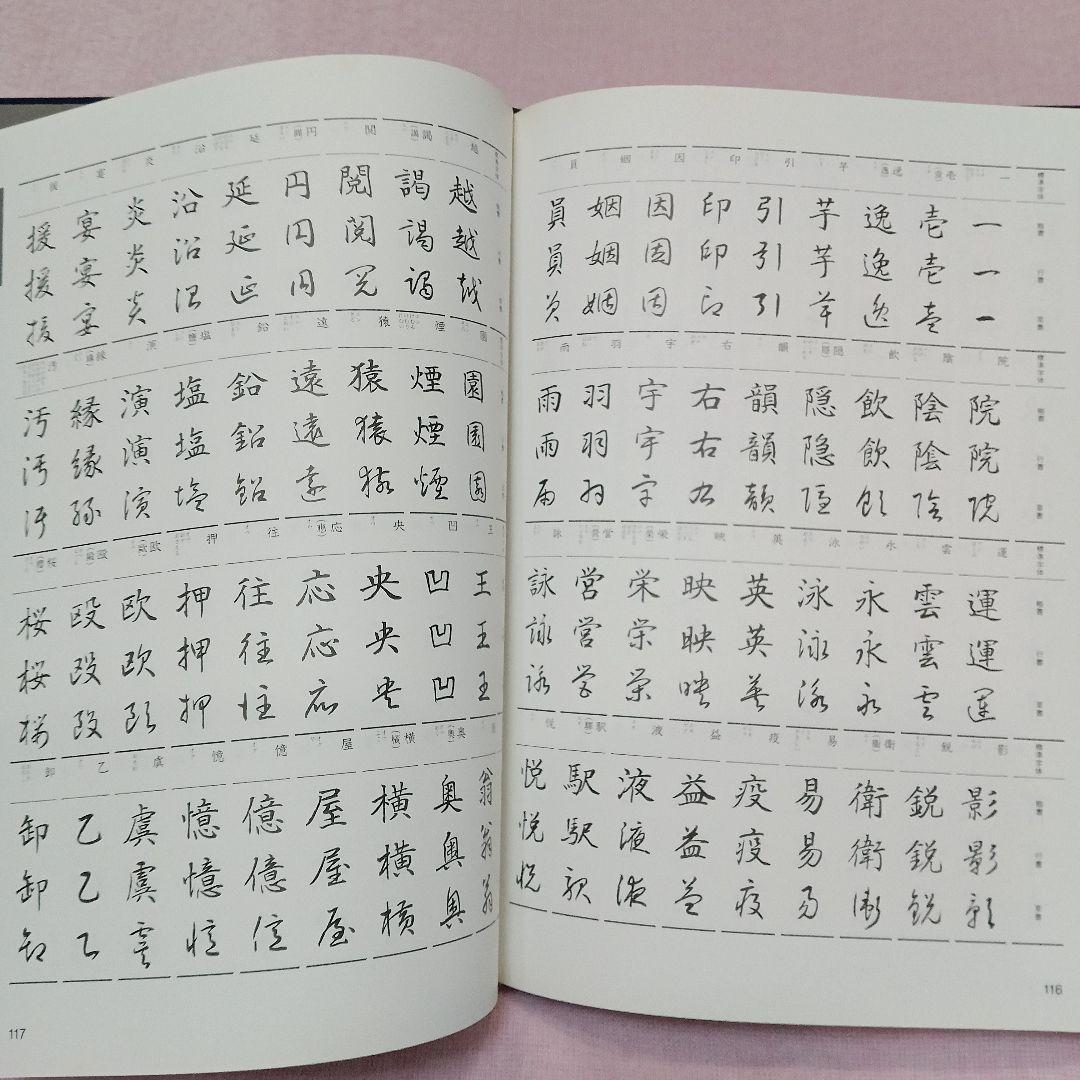 標準字体 一 壱(壹) 逸 芋 引 印 因 姻 員
楷書 一 壱 逸 芋 引 印 因 姻 員
行書 一 壱 逸 芋 引 印 因 姻 員
草書 一 壱 逸 芋 引 印 因 姻 員
標準字体 院 陰 飲 隠(隱) 韻 右 宇 羽 雨
楷書 院 陰 飲 隠 韻 右 宇 羽 雨
行書 院 陰 飲 隠 韻 右 宇 羽 雨
草書 院 陰 飲 隠 韻 右 宇 羽 雨
標準字体 運 雲 永 泳 英 映 栄(榮) 営(營) 詠
楷書 運 雲 永 泳 英 映 栄 営 詠
行書 運 雲 永 泳 英 映 栄 営 詠
草書 運 雲 永 泳 英 映 栄 営 詠
標準字体 影 鋭 衛(衞) 易 疫 益 液 駅(驛) 悦
楷書 影 鋭 衛 易 疫 益 液 駅 悦
行書 影 鋭 衛 易 疫 益 液 駅 悦
草書 影 鋭 衛 易 疫 益 液 駅 悦
116
標準字体 越 謁 閲 円(圓) 延 沿 炎 宴 援
楷書 越 謁 閲 円 延 沿 炎 宴 援
行書 越 謁 閲 円 延 沿 炎 宴 援
草書 越 謁 閲 円 延 沿 炎 宴 援
園 煙 猿 遠 鉛 塩(鹽) 演 縁(緣) 汚
園 煙 猿 遠 鉛 塩 演 縁 汚
園 煙 猿 遠 鉛 塩 演 縁 汚
園 煙 猿 遠 鉛 塩 演 縁 汚
王 凹 央 応(應) 往 押 欧(歐) 殴(毆) 桜(櫻)
王 凹 央 応 往 押 欧 殴 桜
王 凹 央 応 往 押 欧 殴 桜
王 凹 央 応 往 押 欧 殴 桜
翁 奥(奧) 横(橫) 屋 億 憶 虞 乙 卸
翁 奥 横 屋 億 憶 虞 乙 卸
翁 奥 横 屋 億 憶 虞 乙 卸
翁 奥 横 屋 億 憶 虞 乙 卸
117